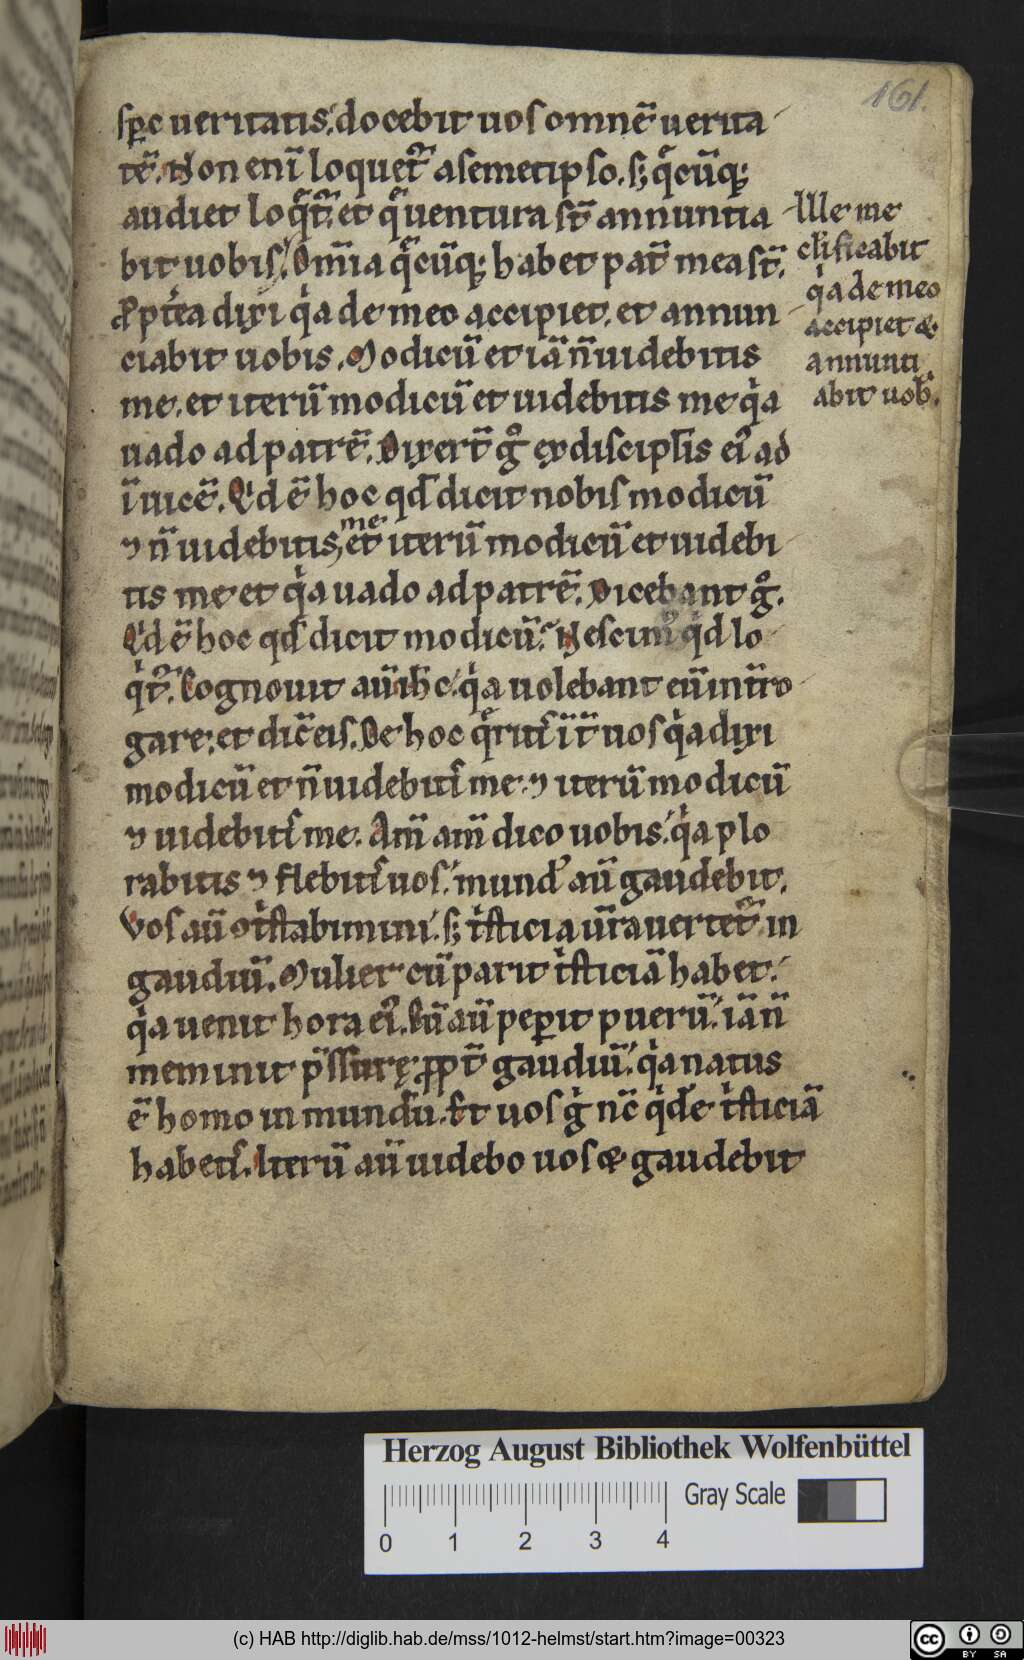 161.
sp̅c ueritatis. docebit uos omnē uerita
tē. Non enī loquet᷑ a semetipso. s; qͤcūq;
audiet loqͤt᷑. et qͤ uentura st̅ annuntia
bit uobis. Om̅ia qͤcūq; habet pat̅ mea st̅.
ꝓpt̅ea dixi qͥa de meo accipiet. et annun
ciabit uobis. Modicū et iā n̅ uidebitis
me. et iterū modicū et uidebitis me qͥa
uado ad patrē. Dixert̅ gͦ ex discipl̅is ei᷒ ad
īuicē. Qͥd ē hoc qd̅ dicit nobis modicū
⁊ n̅ uidebitis me et iterū modicū et uidebi
tis me et qͥa uado ad patrē. Dicebant gͦ.
Qͥd ē hoc qd̅ dicit modicū. Nescim᷒ qͥd lo
qͥt᷑. Cognouit aū ih̅c. qͥa uolebant eū int̅ro
gare. et dic̅ eis. De hoc qͤritis īt̅ uos qͥa dixi
modicū et n̅ uidebitis me. ⁊ iterū modicū
⁊ uidebitis me. Am̅ am̅ dico uobis. qͥa plo
rabitis ⁊ flebitis uos. mund᷒ aū gaudebit.
Vos aū ↄtͥstabimini. s; tͥsticia ur̅a uertet᷑ in
gaudiū. Mulier cū parit tͥsticiā habet.
qͥa uenit hora ei᷒. Cū aū pep̅it puerū. iā n̅
meminit p̅ssurę. ꝓpt̅ gaudiū. qͥa natus
ē homo in mundū. Et uos gͥ nc̅ qͥdē tͥsticiā
habetis. Iterū aū uidebo uos & gaudebit
Ille me
clificabit
qͥa de meo
accipiet &
annunti
abit uob̅.
Herzog August Bibliothek Wolfenbüttel
Gray Scale
0 1 2 3 4
(c) HAB http://diglib.hab.de/mss/1012-helmst/start.htm?image=00323
cc BY SA